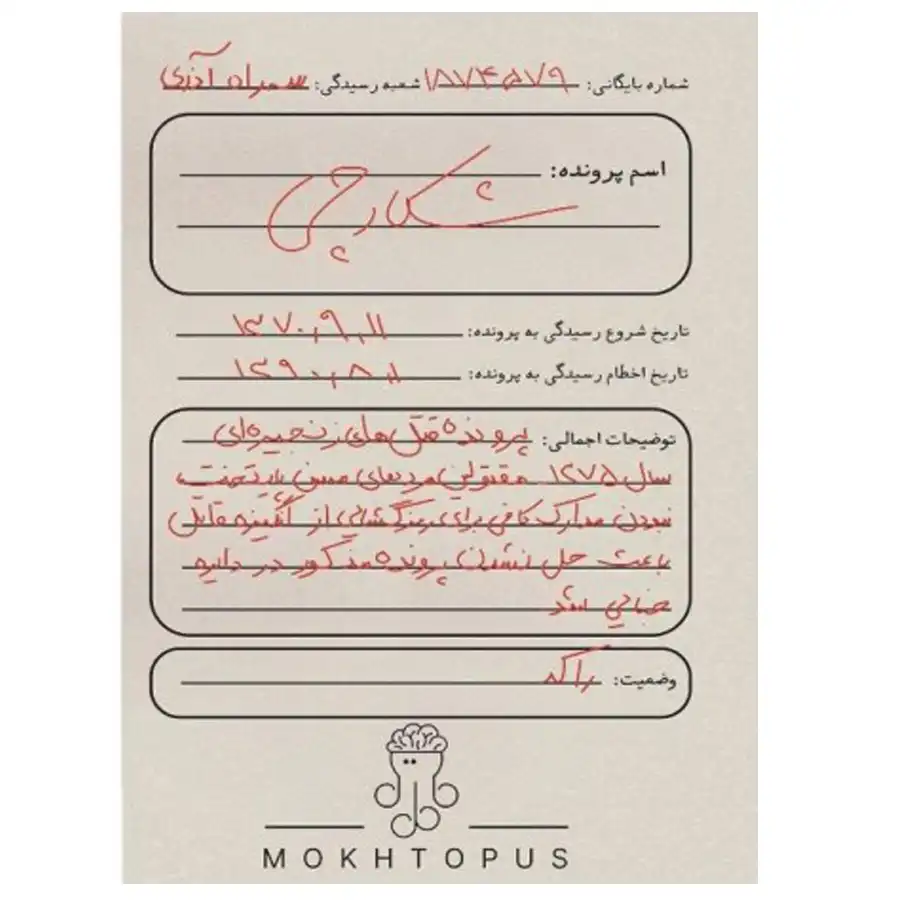 شماره بایگانی: ۱۸۷۴۵۷۹ شعبه رسیدگی: سهراه آذری
اسم پرونده:
شکارچی
تاریخ شروع رسیدگی به پرونده: ۱۳۷۰.۹.۱۱
تاریخ اخطام رسیدگی به پرونده: ۱۳۹۰.۸.۱
توضیحات اجمالی: پرونده قتل های زنجیره‌ای
سال ۱۳۷۵ مقتولین مردهای مسن پایتخت
نبودن مدارک کافی برای رمزگشایی از انگیزه قاتل
باعث حل نشدن پرونده مذکور در دایره
جنایی شد
وضعیت: راکد
MOKHTOPUS